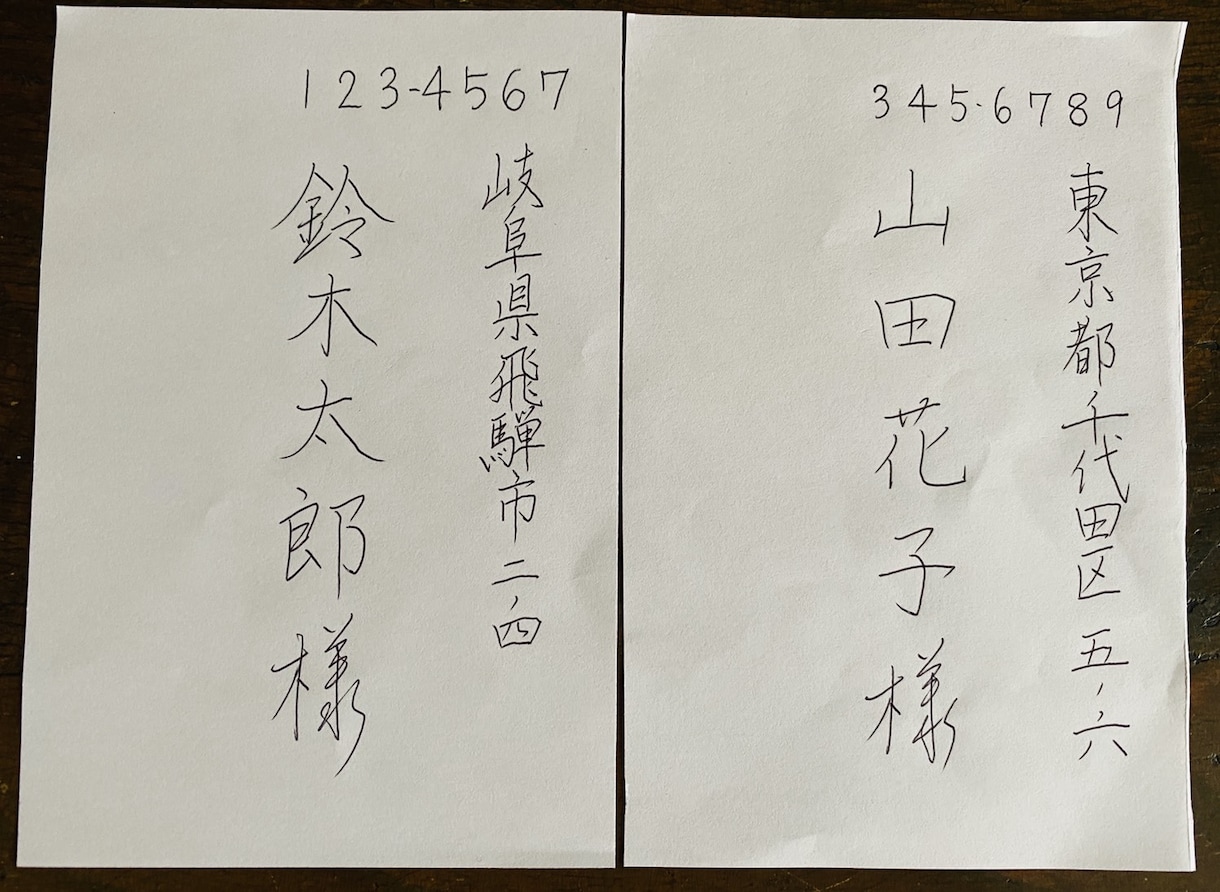 123-4567
岐阜県飛騨市二、四
鈴木太郎様
345-6789
東京都千代田区五、六
山田花子様